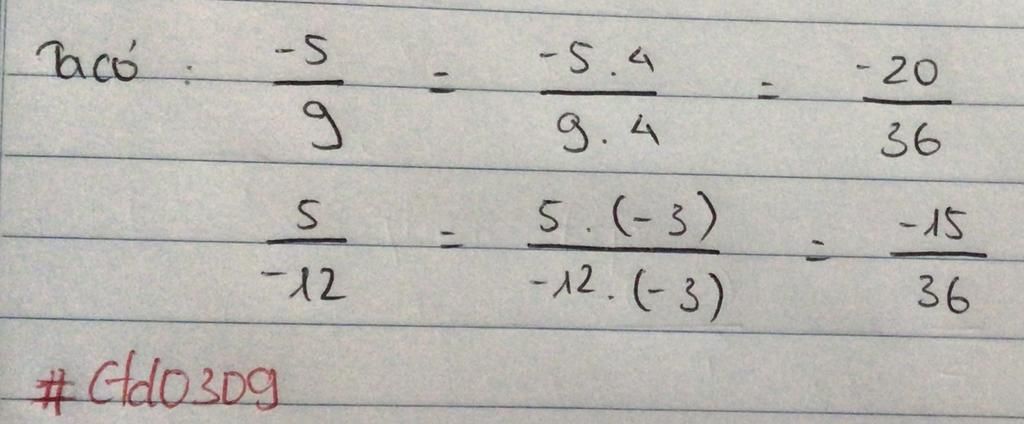 Ta có : -5/9 = -5.4/9.4 = -20/36
5/-12 = 5.(-3)/-12.(-3) = -15/36
#Ctd0309